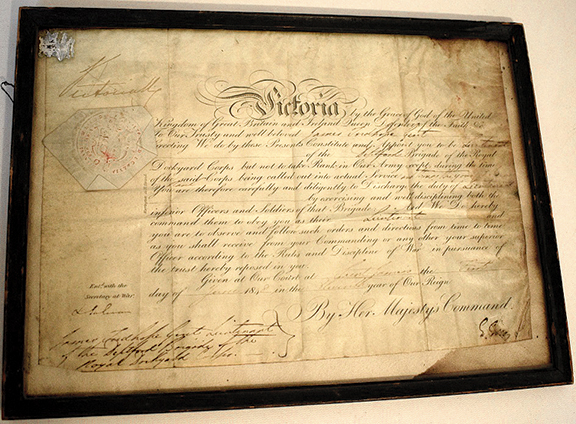 Victoria
Victoria by the Grace of God of the United
Kingdom of Great Britain and Ireland Queen Defender of the Faith &c
To Our Trusty and well beloved James
Greeting We do by these Presents Constitute and Appoint you to be
of the Deptford Brigade of the Royal
Dockyard Corps but not to take Rank in Our Army except during the time
of the said Corps being called out into actual Service
You are therefore carefully and diligently to Discharge the duty of Lieutenant
by exercising and well disciplining both the
inferior Officers and Soldiers of that Brigade and We Do hereby
command them to obey you as their Lieutenant and
you are to observe and follow such orders and directions from time to time
as you shall receive from your Commanding or any other your superior
Officer according to the Rules and Discipline of War in pursuance of
the trust hereby reposed in you
Given at Our Court at St James's the
day of June 184 in the year of Our Reign
By Her Majesty's Command
Entd. with the
Secretary at War
James Lieutenant
of the Deptford Brigade of the
Royal Dockyard Corps